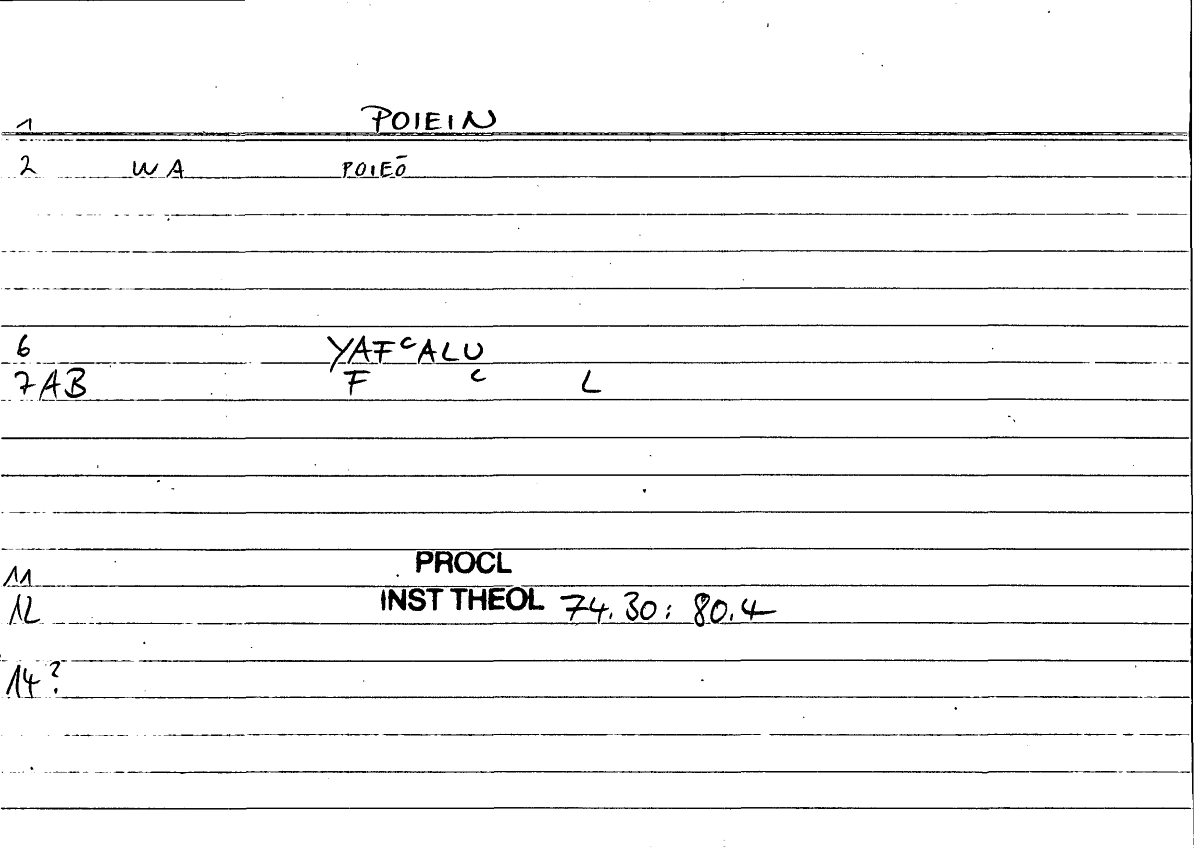 1 POIEIN
2 WA POIEŌ
6 YAFᶜALU
7AB F ᶜ L
11 PROCL
12 INST THEOL 74.30: 80.4
14?